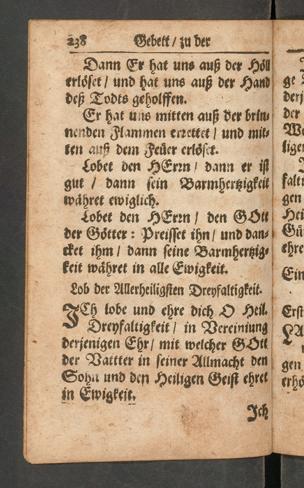 238 Gebett / zu der
Dann Er hat uns auß der Höll
erlöset / und hat uns auß der Hand
deß Todts geholffen.
Er hat uns mitten auß der brin-
nenden Flammen errettet / und mit-
ten auß dem Feüer erlöset.
Lobet den HErrn / dann er ist
gut / dann sein Barmhertzigkeit
währet ewiglich.
Lobet den HErrn / den GOtt
der Götter: Preisset ihn / und dan-
cket ihm / dann seine Barmhertzig-
keit währet in alle Ewigkeit.
Lob der Allerheiligsten Dreyfaltigkeit.
ICh lobe und ehre dich O Heil.
Dreyfaltigkeit / in Vereinung
derjenigen Ehr / mit welcher GOtt
der Vattter in seiner Allmacht den
Sohn und den Heiligen Geist ehret
in Ewigkeit.
Ich